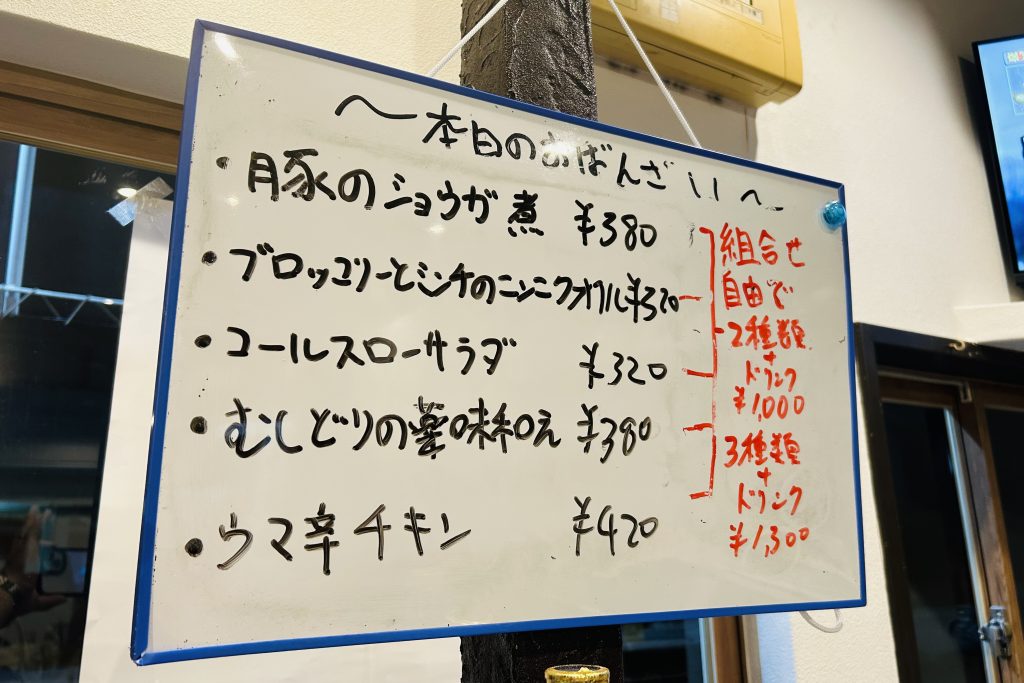 〜本日のおばんざい〜
・豚のショウガ煮 ¥380
・ブロッコリーとミンチのニンニクオイル ¥320
・コールスローサラダ ¥320
・むしどりの薬味和え ¥380
・ウマ辛チキン ¥420
組合せ
自由で
2種類
+
ドリンク
¥1,000
3種類
+
ドリンク
¥1,300